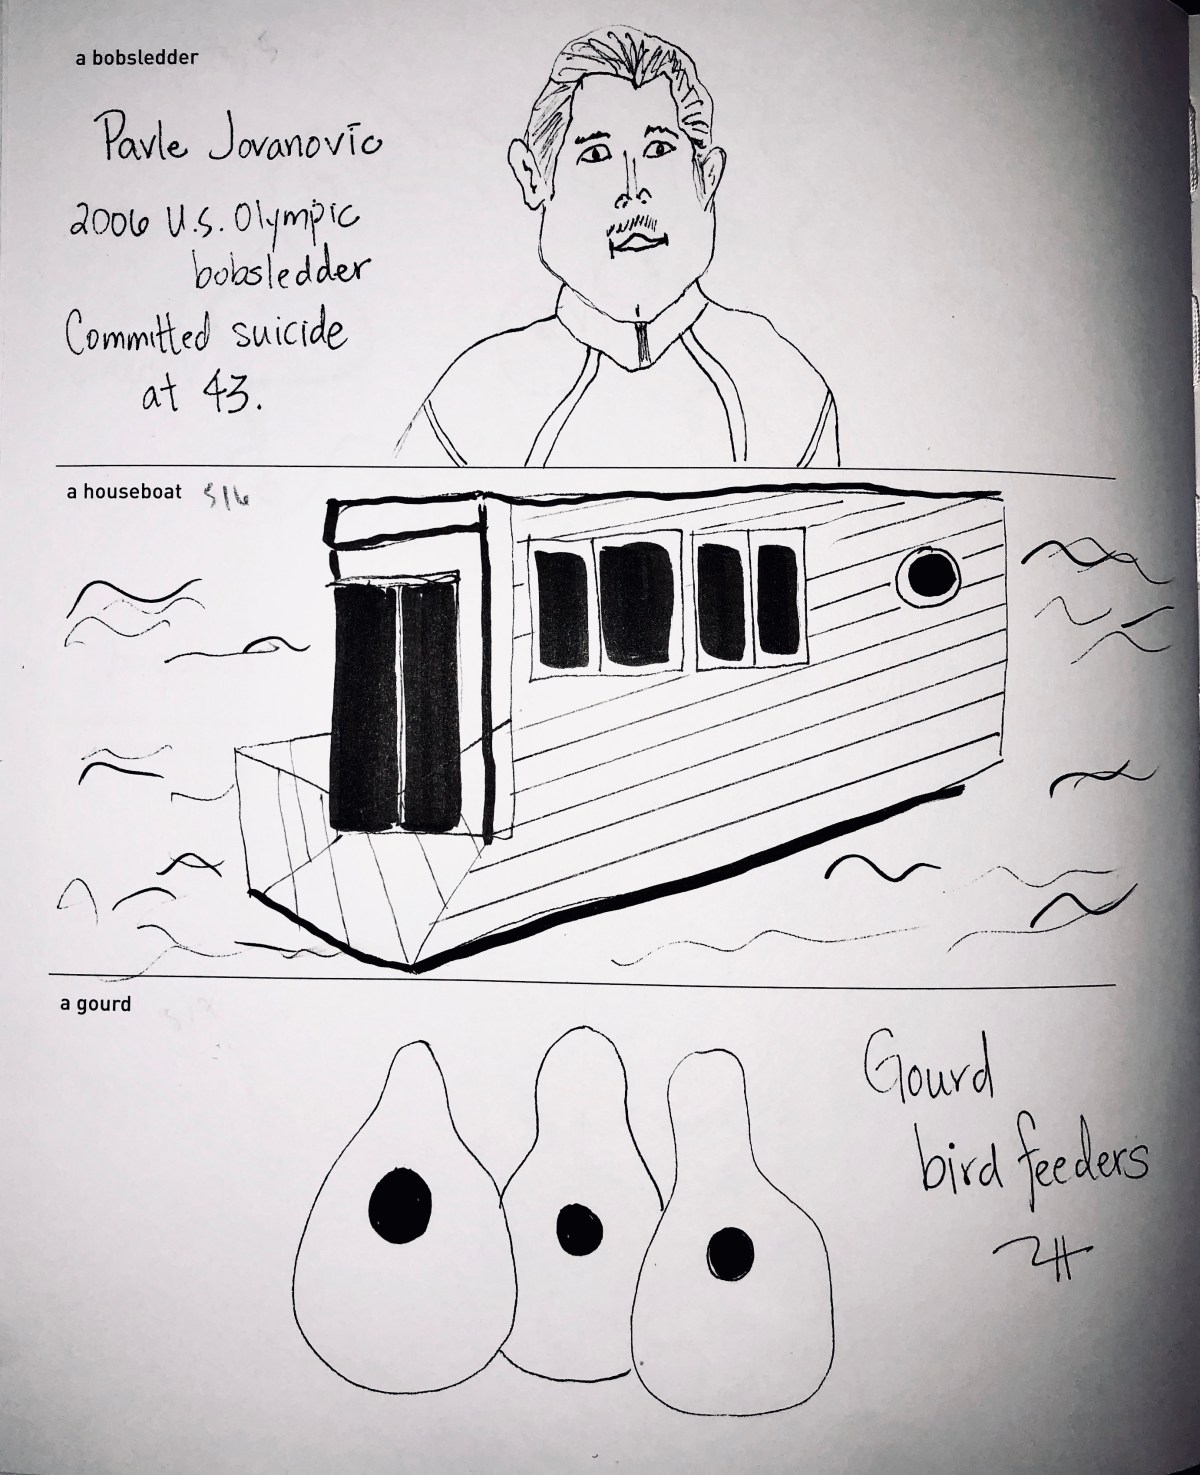 a bobsledder
Pavle Jovanovic
2006 U.S. Olympic
bobsledder
Committed suicide
at 43.
a houseboat 5/6
a gourd
Gourd
bird feeders